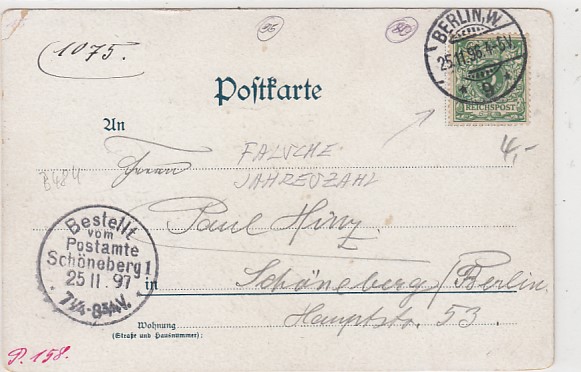 1075.
36
80
BERLIN.W.
25.11.96.4-6V.
* 9 *
REICHSPOST
Postkarte
4,-
An
Herrn
FALSCHE
JAHRESZAHL
B484
Paul Hinz
Bestellt
vom
Postamte
Schöneberg 1
25 11. 97
7¼-8¾V.
in Schöneberg/Berlin
Hauptstr. 53.
Wohnung
(Straße und Hausnummer):
P. 158.